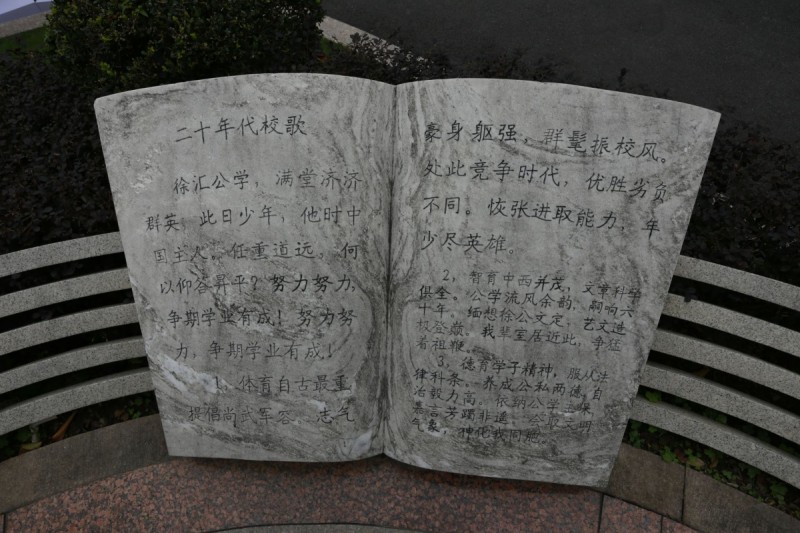 二十年代校歌
徐汇公学，满堂济济
群英，此日少年，他时中
国主人。任重道远，何
以仰答昇平？努力努力，
争期学业有成！努力努
力，争期学业有成！
1、体育自古最重，
提倡尚武军容，志气
豪身躯强，群髦振校风。
处此竞争时代，优胜劣负
不同。恢张进取能力，年
少尽英雄。
2，智育中西并茂，文章科学
俱全。公学流风余韵，嗣响六
十年。缅想徐公文定，艺文造
极登巅。我辈室居近此，争猛
着祖鞭。
3，德育学子精神，服从法
律科条。养成公私两德，自
治毅力高。依纳公学主保，
嘉言芳躅非遥。
气象，神化我同胞。